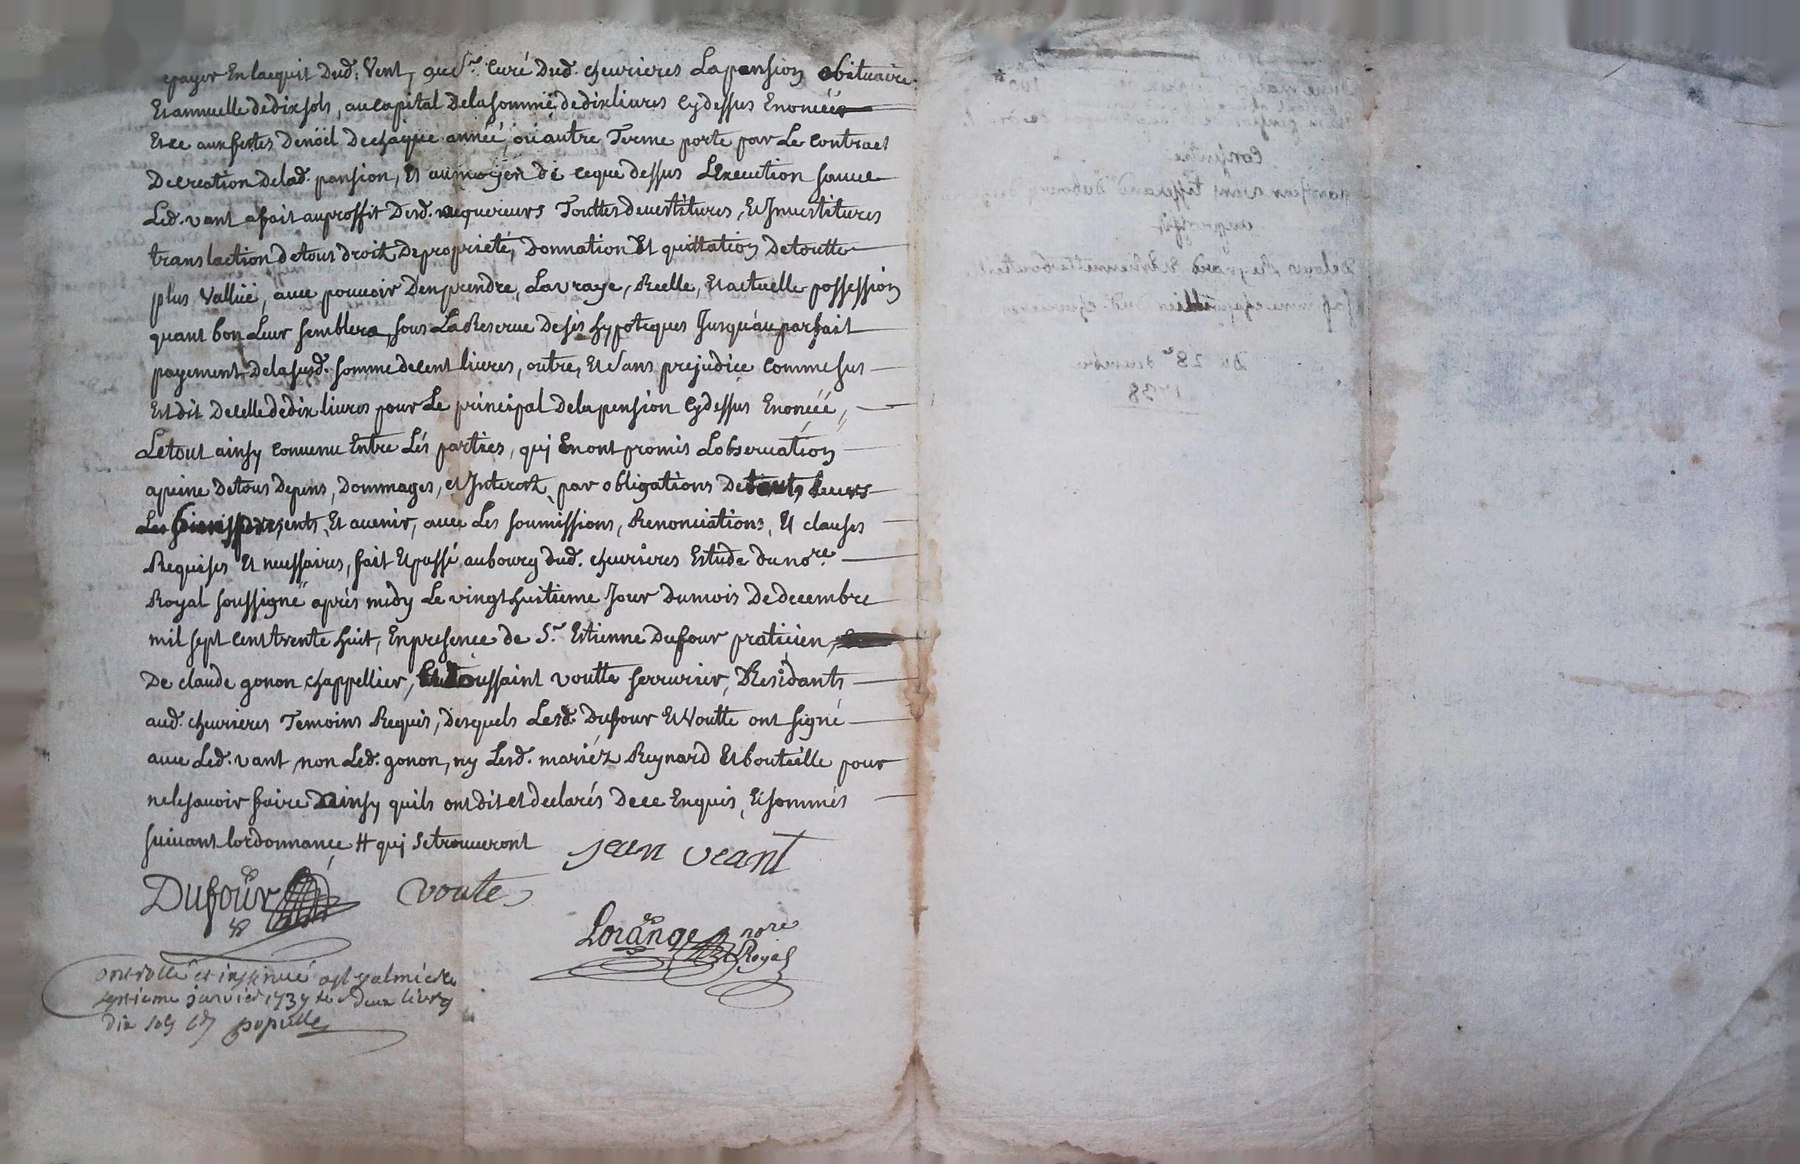 payer En lacquit Dud. Vent, au Sr. Curé Dud. chevrieres La pansion obituaire
Et annuelle de dix sols, au capital De la somme de dix livres Cy dessus Enoncéé
Et ce aux festes De nöel De chaque année, ou autre Terme porté par Le Contract
De creation De lad. pansion, Et au moÿen de ce que dessus L'Execution sauve
Led. vant a fait au proffit Desd. acquereurs Touttes devestitures, Et Jnvestitures
translaction de tous droits De proprieté, Donnation Et quittation De toutte
plus Vallüe, avec pouvoir D'en prendre, La vraye, Réelle, Et actuelle possession
quant bon Leur semblera, sous La Reserve De ses hypoteques Jusqu'au parfait
payement De la susd. somme de cent livres, outre, Et sans prejudice Comme sus
Est dit De celle de dix livres pour Le principal De la pension Cy dessus Enoncéé,
Le tout ainsy convenu Entre Lés parties, qui En ont promis L'observation
a peine De tous Depens, Dommages, et Jnterests, par obligations De touts Leurs
Les biens presents, Et avenir, avec Les soumissions, Renonciations, Et clauses
Requises Et necessaires, fait Et passé au bourg dud. chevrieres Estude du nore.
Royal soussigné aprés midy Le vingt huitieme Jour Du mois De decembre
mil sept cent trente huit, En presence de Sr. Estienne Dufour praticien,
De claude gonon chappellier, Et toussaint voutte serrurier, Residants
aud. chevrieres Temoins Requis, Desquels Lesd. Dufour Et Voutte ont signé
avec Led. vant, non Led. gonon, ny Lesd. mariéz Reynard Et bouteille pour
ne le savoir faire Ainsy quils ont dit et declarés De ce Enquis, Et sommés
suivant lordonnance # qui se trouveront
jean veant
Dufour
voute
Lorange nore
Royal
Controllé et insinué a St galmier le
janvier 1739 deux livres
dix sols
Du 28e decembre
1738